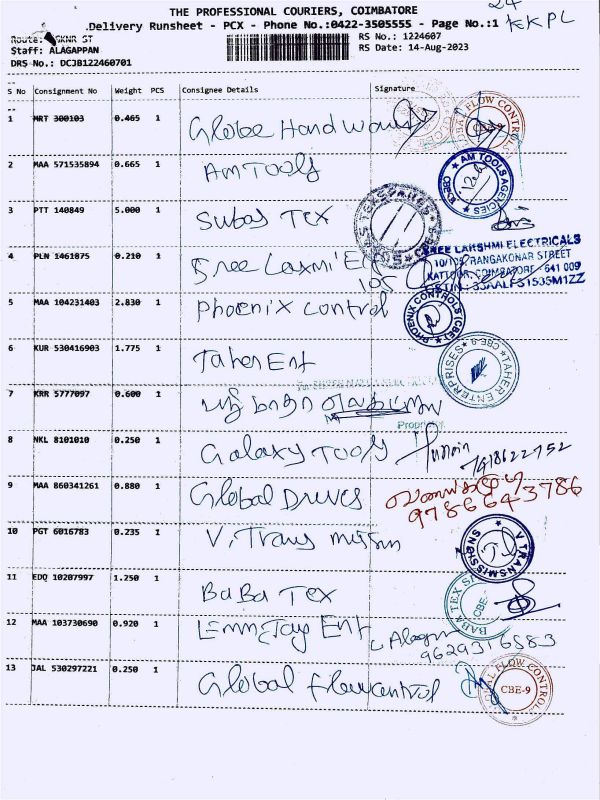 THE PROFESSIONAL COURIERS, COIMBATORE
Delivery Runsheet - PCX - Phone No.:0422-3505555 - Page No.:1
24
KKPL
Route: GKNR ST
RS No.: 1224607
Staff: ALAGAPPAN
RS Date: 14-Aug-2023
DRS No.: DCJB122460701
S No Consignment No Weight PCS Consignee Details Signature
1 MRT 300103 0.465 1 Globe Hardware
2 MAA 571535894 0.665 1 AM Tools
AM TOOLS AGENCIES
3 PTT 140849 5.000 1 Subas Tex
4 PLN 1461875 0.210 1 Sree Laxmi Ent
105
SREE LAKSHMI ELECTRICALS
10/105, RANGAKONAR STREET
KATTOOR, COIMBATORE - 641 009
GSTIN: 33AALFS1535M1ZZ
5 MAA 104231403 2.830 1 Phoenix Control
PHOENIX CONTROLS (CBE)
6 KUR 530416903 1.775 1 Taher Ent
TAHER ENTERPRISES CBE-9
7 KRR 5777097 0.600 1
8 NKL 8101010 0.250 1 Galaxy Tools
9 MAA 860341261 0.880 1 Global Drives
9786643786
10 PGT 6016783 0.235 1 V. Trans mission
V TRANSMISSIONS
11 EDQ 10207997 1.250 1 BaBa Tex
BABA TEX
CBE-
12 MAA 103730690 0.920 1
9629316583
13 JAL 530297221 0.250 1 Global flow control
GLOBAL FLOW CONTROLS
CBE-9